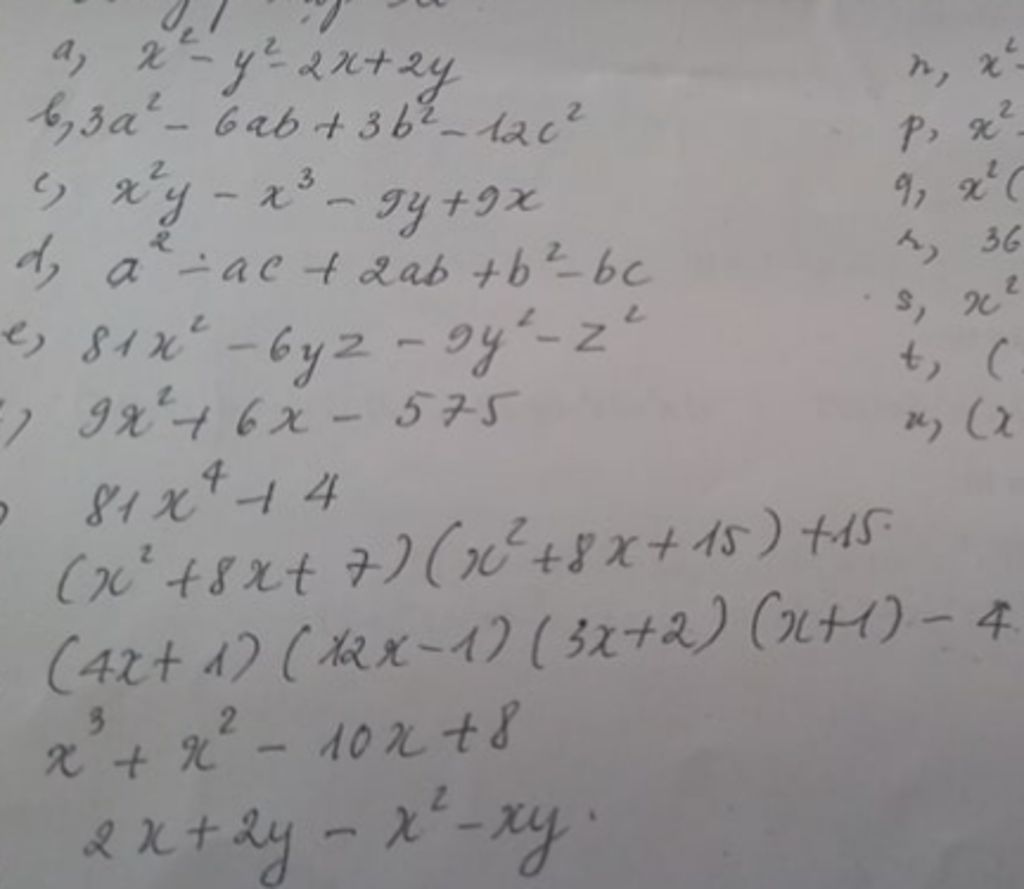 a, x² - y² - 2x + 2y
b, 3a² - 6ab + 3b² - 12c²
c, x²y - x³ - 9y + 9x
d, a² - ac + 2ab + b² - bc
e, 81x² - 6yz - 9y² - z²
9x² + 6x - 575
81x⁴ + 4
(x² + 8x + 7)(x² + 8x + 15) + 15
(4x + 1)(12x - 1)(3x + 2)(x + 1) - 4
x³ + x² - 10x + 8
2x + 2y - x² - xy.
n, x² -
p, x² -
q, x² (
r, 36
s, x²
t, (
u, (x